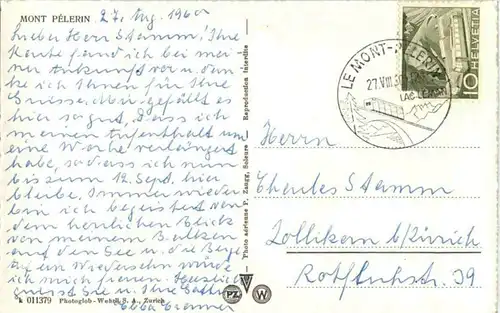 MONT PÉLERIN 27. Aug. 1960
Lieber Herr Stamm! Ihre
Karte fand ich bei mei-
ner Ankunft vor u. dan-
ke ich Ihnen für Ihre
Grüsse. Nun gefällt es
hier so gut, dass ich
meinen Aufenthalt um
eine Woche verlängert
habe, so dass ich nun
bis zum 12. Sept. hier
bleibe. Immer wieder
bin ich begeistert von
dem herrlichen Blick
von meinem Balkon
auf den See u. die Berge.
Auf ein Wiedersehn würde
ich mich freuen. Herzlich
grüsst Sie u. Ihre
k 011379 Photoglob-Wehrli S. A., Zurich
Photo aérienne P. Zaugg, Soleure - Reproduction interdite
PZ W
HELVETIA
10
LE MONT-PÉLERIN
27.VIII.60
LAC LÉMAN
Herrn
Charles Stamm
Zollikon b/Zürich
Rotfluhstr. 39